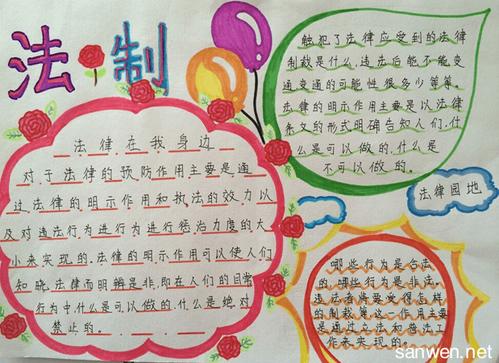 法制
法律在我身边
对于法律的预防作用主要是通
过法律的明示作用和执法的效力以
及对违法行为进行为进行惩治力度的大
小来实现的.法律的明示作用可以使人们
知晓.法律而明辨是非.即在人们的日常
行为中.什么是可以做的.什么是绝对
禁止的。
触犯了法律应受到的法律
制裁是什么.违法后能不能变
通.变通的可能性很多少等等。
法律的明示作用主要是以法律
条文的形式明确告知人们.什
么是可以做的.什么是
不可以做的。
法律园地
哪些行为是合法
的.哪些行为是非法.
违法者将要受得怎样
的制裁等.这一作用主要
是通过立法和普法工
作来实现的。
sanwen.net